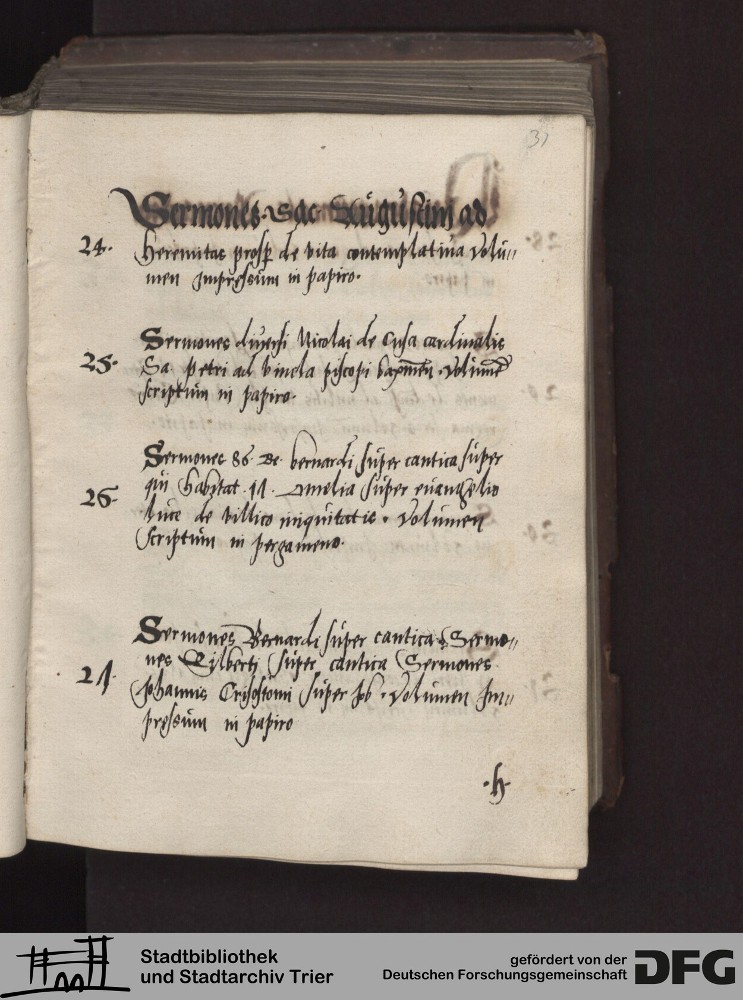 31
Sermones Sac Augustini ad
24. heremitas prosp de vita contemplativa Volu„
men Impressum in papiro.
Sermones diversi Nicolai de Cusa cardinalis
25. Sa petri ad vincla Volumen
scriptum in papiro.
Sermones 86 Be bernardi super cantica super
qui habitat 17. Omelia super euangelio
26. luce de villico iniquitatis. Volumen
scriptum in pergameno.
Sermones Bernardi super cantica Sermo„
nes Gilberti super cantica Sermones
27. Johannis Crisostomi super Job. Volumen Im„
pressum in papiro
.h.
Stadtbibliothek
und Stadtarchiv Trier
gefördert von der
Deutschen Forschungsgemeinschaft
DFG